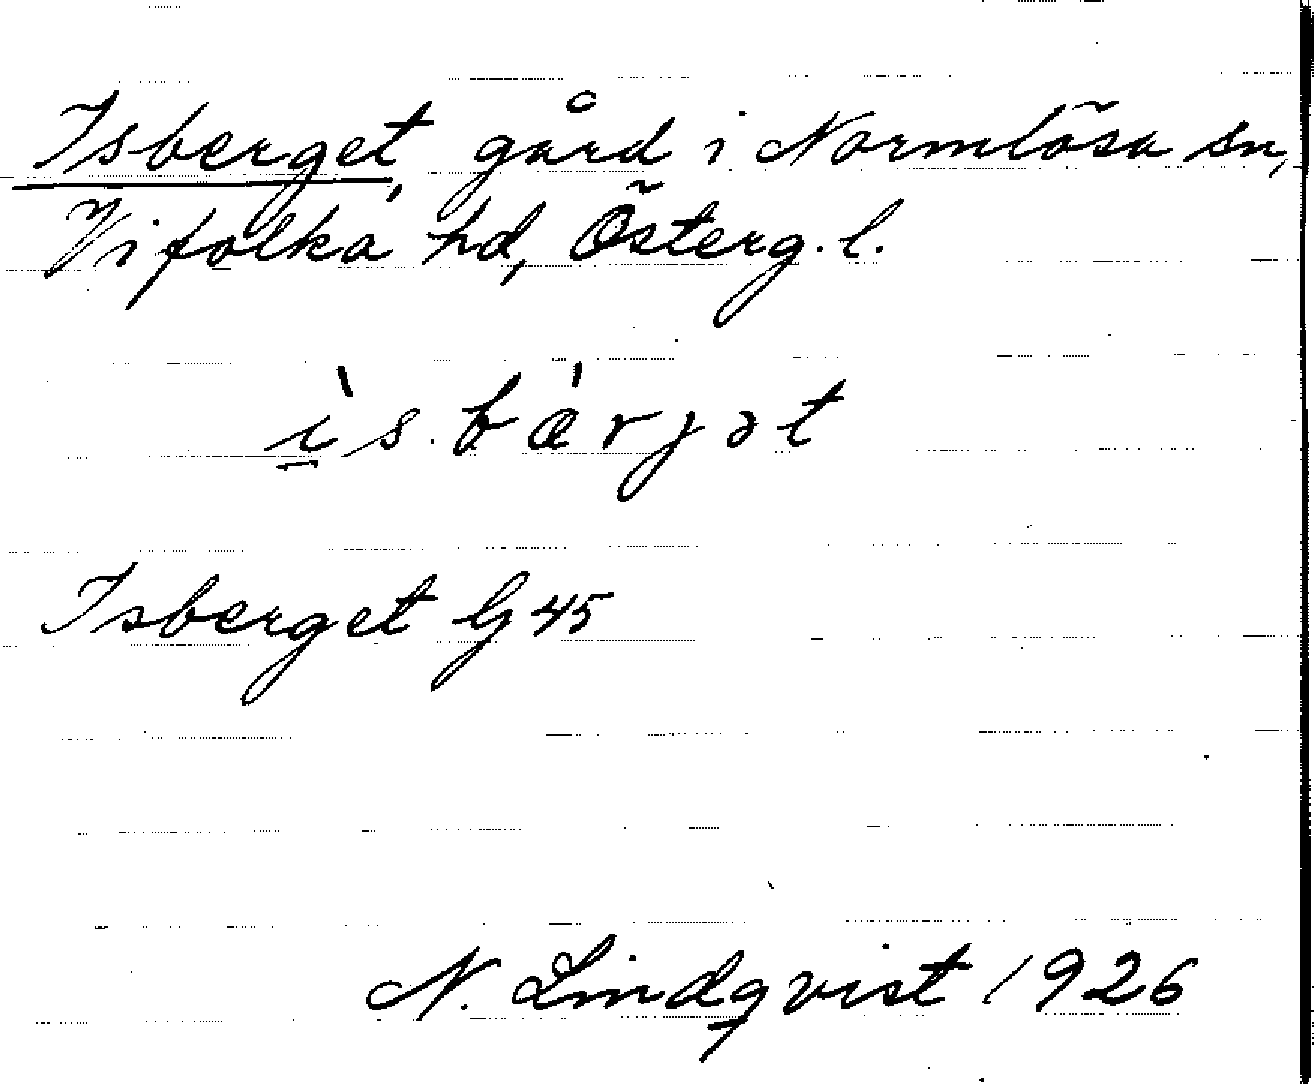 Isberget, gård i Normlösa sn,
Vifolka hd, Österg. l.
ì̱sbærjət
Isberget G 45
N. Lindqvist 1926